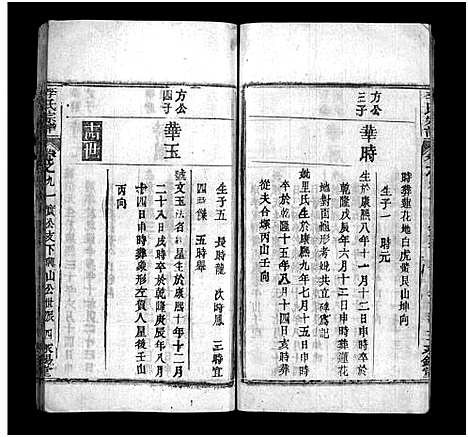 時葬雞花地白虎螯艮山坤向
生子一 時元
方公
三子
華時
生於康熙八年十一月十二日申時卒於
乾隆戊辰年六月十三日申時葬蓮花
地對面拖形考妣共立碑爲記
娶里氏生於康熙九年七月十五日申時
卒於乾隆十五年八月十四日亥時葬
從夫合塚丙山壬向
方公
四子
華玉
號文玉法省
生於康熙十年十二月
二十八日戌時卒於乾隆庚辰年八月
十四日申時葬梁形左賀人屋後壬山
丙向
生子五 長時龍 次時鳳 三時宜
四時 五時舉
十四世
李氏宗譜
卷之九
寶公支下興山公世派